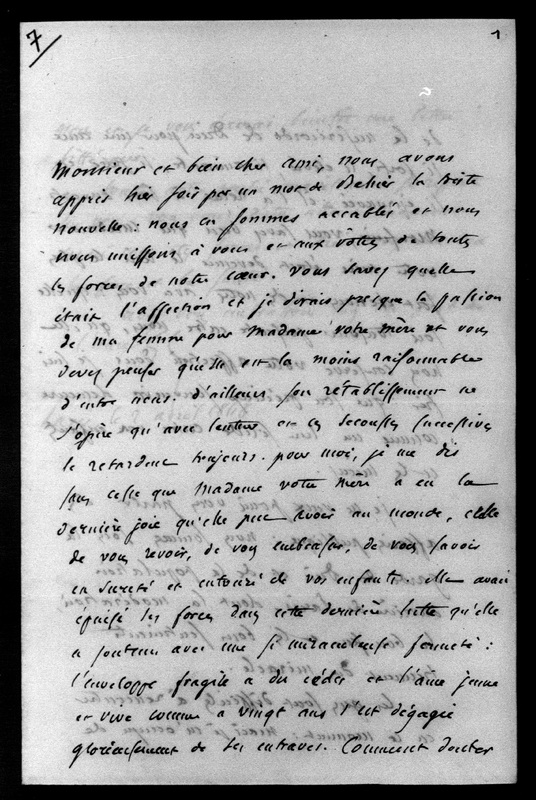 7
1
Monsieur et bien cher ami, nous avons
appris hier soir par un mot de Dehier la triste
nouvelle : nous en sommes accablés et nous
nous unissons à vous et aux vôtres de toutes
les forces de notre cœur. Vous savez quelle
était l'affection et je dirais presque la passion
de ma femme pour Madame votre mère et vous
devez penser qu'elle est la moins raisonnable
d'entre nous. d'ailleurs son rétablissement ne
s'opère qu'avec lenteur et ces secousses successives
le retardent toujours. pour moi, je me dis
sans cesse que Madame votre mère a eu la
dernière joie qu'elle put avoir au monde, celle
de vous revoir, de vous embrasser, de vous savoir
en sureté et entouré de vos enfants. elle avait
épuisé ses forces dans cette dernière lutte qu'elle
a soutenu avec une si miraculeuse fermeté :
l'enveloppe fragile a du céder et l'âme jeune
et vive comme a vingt ans s'est dégagée
glorieusement de ses entraves. Comment douter